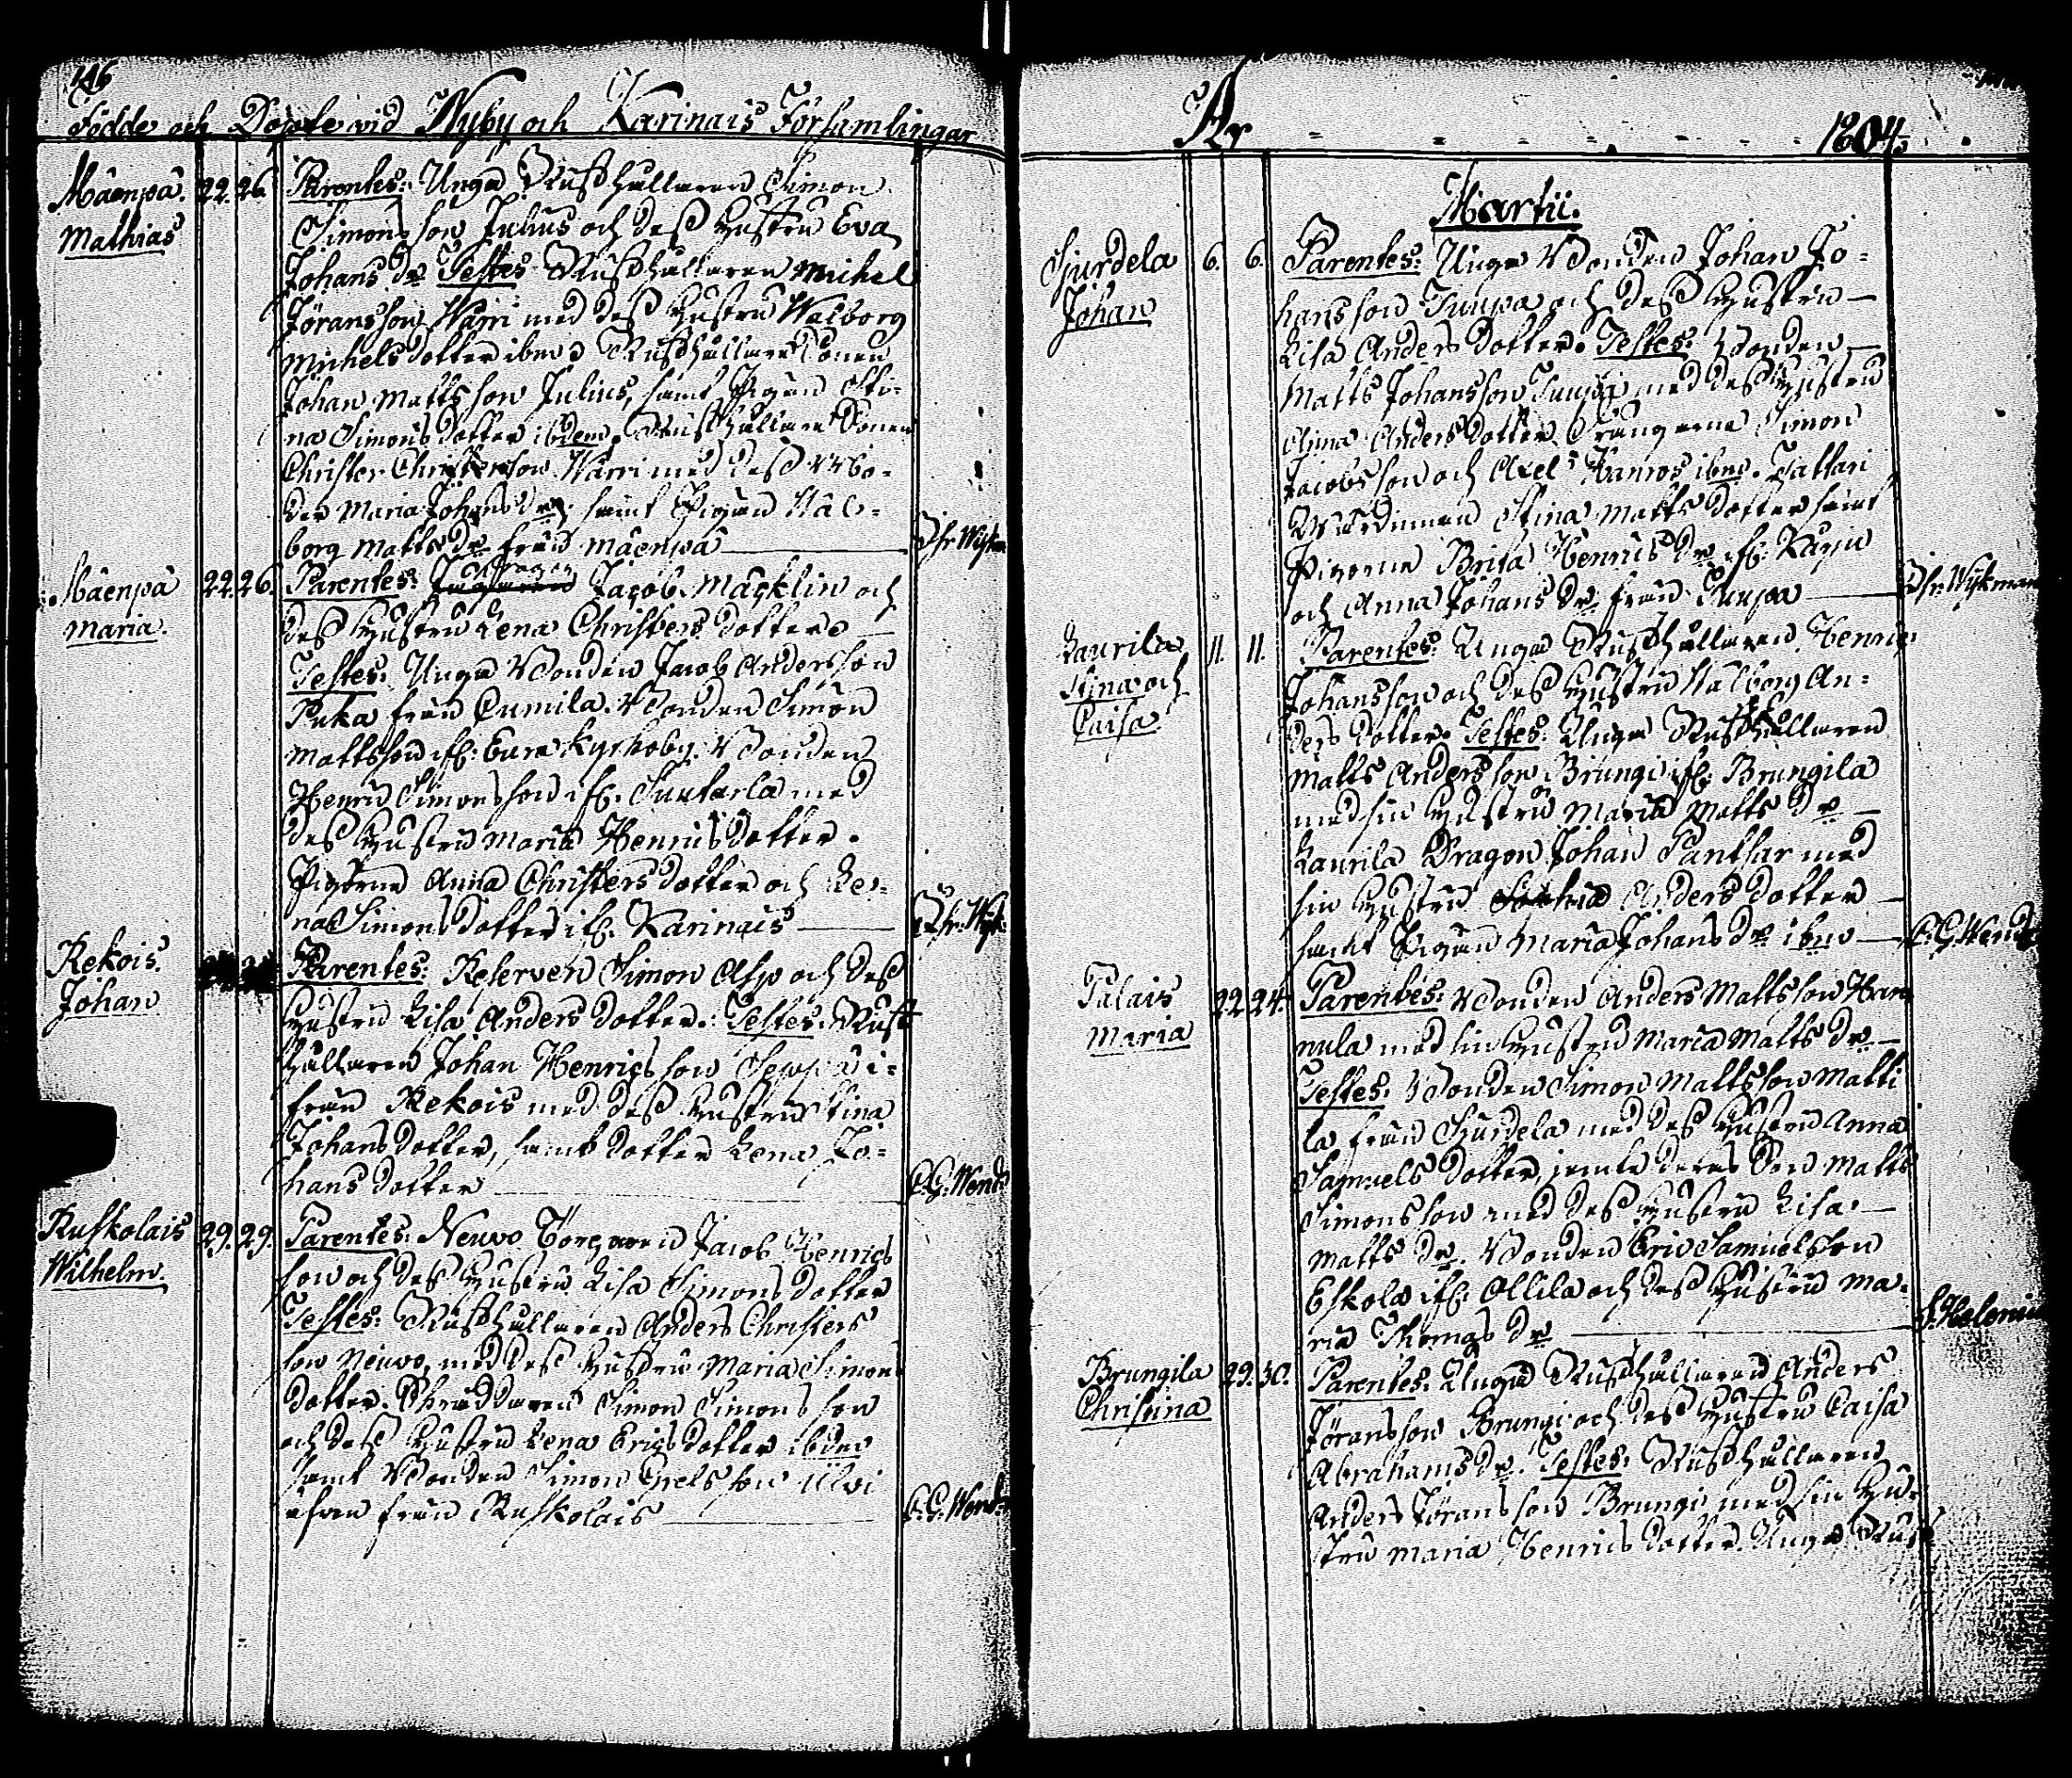 146
Födde och Döpte vid Nyby och Karinais Församlingar
Mäenpä. 22. 26. Parentes: Unga Rusthållaren Simon
Mathias Simonsson Julius och dess hustru Eva
Johans dr Testes Rusthållaren Michel
Jöransson Härri med dess hustru Walborg
Michelsdotter ibm Rusthållare Sonen
Johan Mattsson Julius, samt Pigan Sti-
na Simonsdotter ibdem. Rusthållare Sonen
Christer Christersson Härri med dess
der Maria Johans dr samt Pigan Wal-
borg Matts dr från Mäenpä Wykm
Mäenpä 22. 26. Parentes: Dragon Jacob Mäcklin och
Maria. dess hustru Lena Christersdotter
Testes: Unga Bonden Jacob Andersson
Puka från Cumila. Bonden Simon
Mattsson ifr: Eura Kyrkoby. Bonden
Henric Simonsson ifr. Suutarla med
dess hustru Maria Henricsdotter.
Pigorna Anna Christersdotter och Le-
na Simonsdotter ifr. Karinais Wyk
Rekois. Parentes: Reserven Simon Asp och dess
Johan hustru Lisa Andersdotter. Testes: Rust
hållaren Johan Henricsson Seppä i-
från Rekois med dess hustru Stina
Johansdotter, samt dotter Lena Jo-
hansdotter C. G. Wend
Ruskolais 29. 29. Parentes: Neuvo Torparen Jacob Henrics
Wilhelm. son och dess hustru Lisa Simonsdotter
Testes: Rusthållaren Anders Christers
son Neuvo, med dess hustru Maria Simons
dotter. Skräddaren Simon Simonsson
och dess hustru Lena Ericsdotter ibdem
samt Bonden Simon Michelsson Ulvi
från Ruskolais C. G. Wend
År 1804.
Martii.
Sjurdela 6. 6. Parentes: Unga Bonden Johan Jo-
Johan hansson Tuupa och dess hustru
Lisa Andersdotter. Testes: Bonden
Matts Johansson Tuupa med dess hustru
Anna Andersdotter Drängarne Simon
Jacobsson och Axel Hanros ibm. Tattari
Wärdinnan Stina Mattsdotter samt
Pigorna Brita Henrics dr ifr: Karju
och Anna Johans dr från Tuupa Wykman
Laurila 11. 11. Parentes: Unga Rusthållaren Henric
Stina och Johansson och dess hustru Walborg An-
Caisa dersdotter. Testes: Unga Rusthållaren
Matts Andersson Brungi ifr: Brungila
med sin hustru Maria Matts dr
Laurila Dragon Johan Pantsar med
sin hustru Andersdotter
samt Pigan Maria Johans dr ibm C. G. Wend
Palais 22. 24. Parentes: Bonden Anders Mattsson Han
Maria nula med sin hustru Maria Matts dr
Testes: Bonden Simon Mattsson Matti
la från Sjurdela med dess hustru Anna
Samuelsdotter, jemte deras Son Matts
Simonsson med dess hustru Lisa
Matts dr. Bonden Eric Samuelsson
Eskola ifr: Ollila och dess hustru Ma-
ria Thomas dr S. Helenius
Brungila 29. 30. Parentes: Unga Rusthållaren Anders
Christina Jöransson Brungi och dess hustru Caisa
Abrahams dr. Testes: Rusthållaren
Anders Jöransson Brungi med sin hu-
stru Maria Henricsdotter. Unga Rust